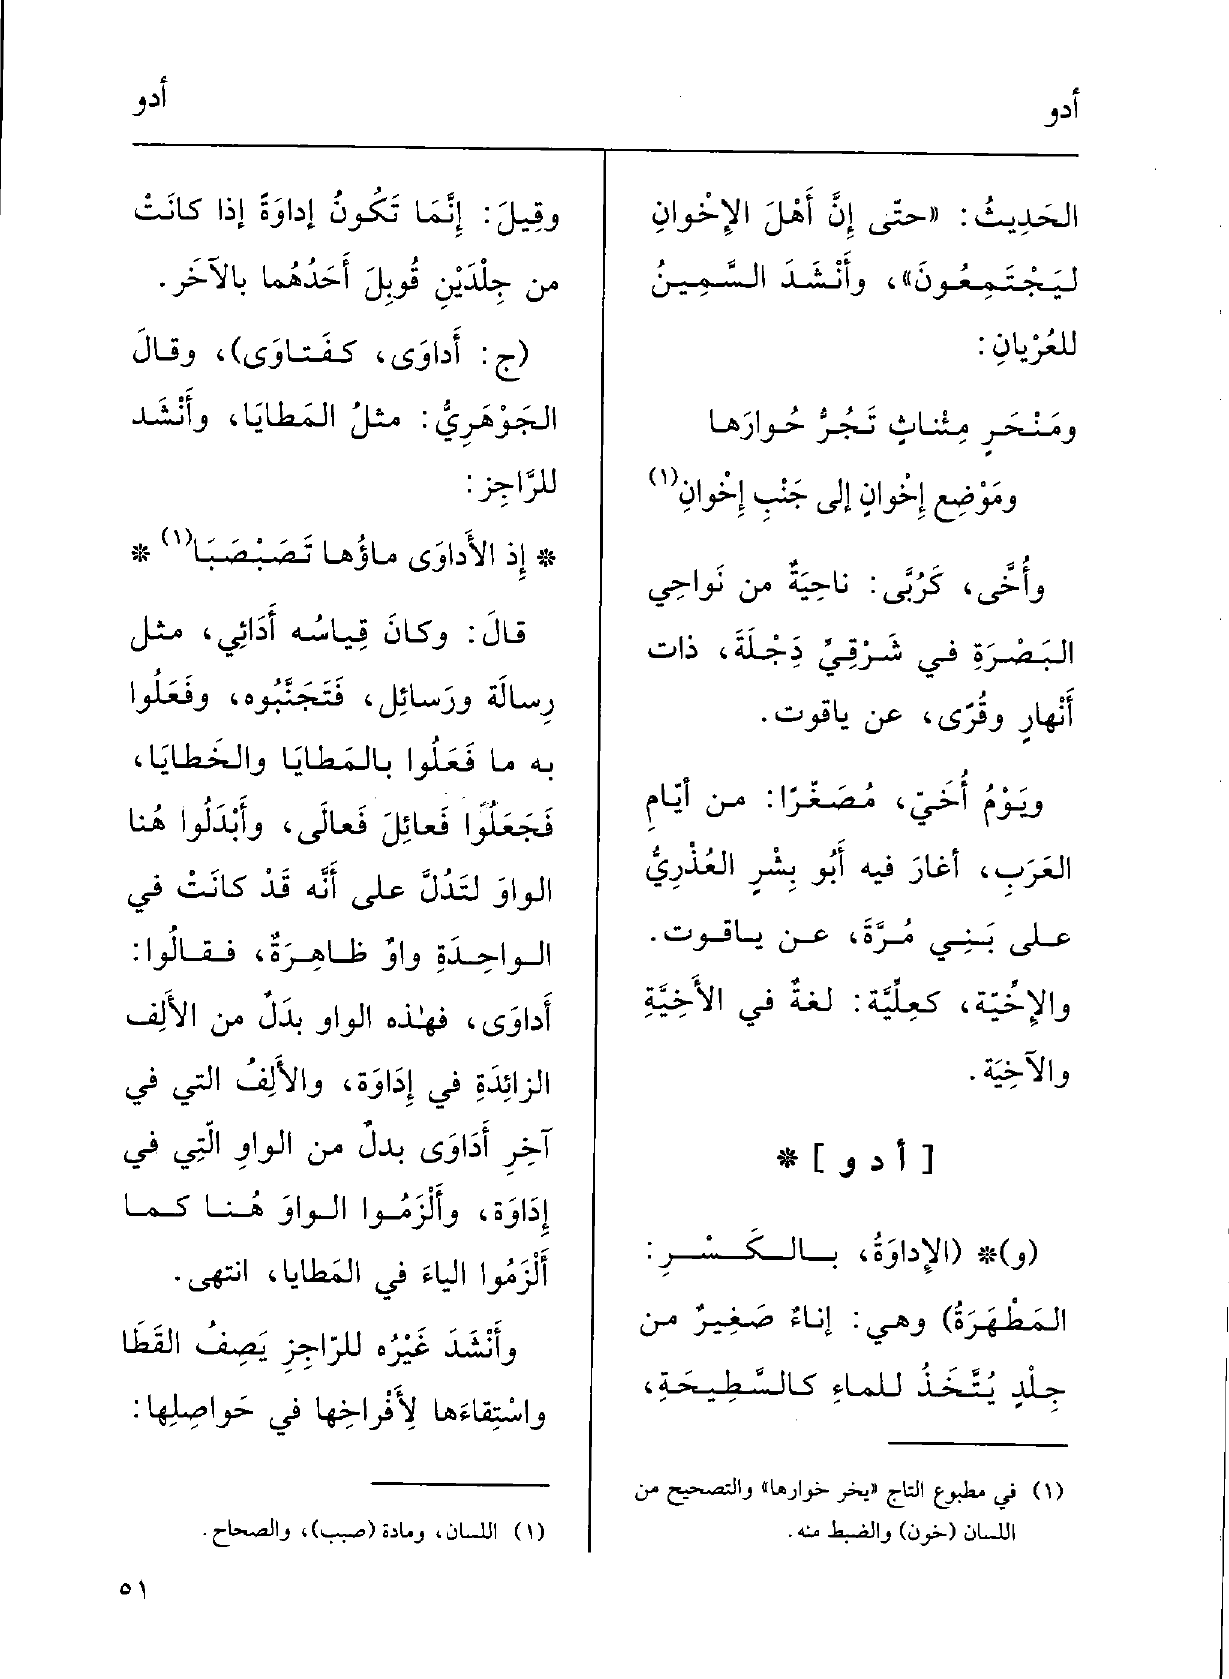 أدو
أدو
الحَدِيثُ: «حتّى إنَّ أَهْلَ الإِخْوانِ
لَيَجْتَمِعُونَ»، وأَنْشَدَ السَّمِينُ
للعُرْيانِ:
ومَنْحَرِ مِئْناثٍ تَجُرُّ حُوارَها
ومَوْضِعِ إِخْوانٍ إلى جَنْبِ إِخْوانِ(١)
وأُخَّى، كَرُبَّى: ناحِيَةٌ من نَواحِي
البَصْرَةِ في شَرْقِيِّ دَجْلَةَ، ذات
أَنْهارٍ وقُرًى، عن ياقوت.
ويَوْمُ أُخَيّ، مُصَغّرًا: من أيّامِ
العَرَبِ، أغارَ فيه أَبُو بِشْرٍ العُذْرِيُّ
على بَنِي مُرَّةَ، عن ياقوت.
والإِخِّيّة، كعِلِّيَّة: لغةٌ في الأَخِيَّةِ
والآخِيَة.
[ أ د و ] *
(و)* (الإِداوَةُ، بالكَسْرِ:
المَطْهَرَةُ) وهي: إناءٌ صَغِيرٌ من
جِلْدٍ يُتَّخَذُ للماءِ كالسَّطِيحَةِ،
(١) في مطبوع التاج «يخر خوارها» والتصحيح من
اللسان (خون) والضبط منه.
وقِيلَ: إنَّمَا تَكُونُ إداوَةً إذا كانَتْ
من جِلْدَيْنِ قُوبِلَ أَحَدُهُما بالآخَر.
(ج: أَداوَى، كفَتاوَى)، وقالَ
الجَوْهَرِيُّ: مثلُ المَطايَا، وأَنْشَد
للرَّاجِز:
* إِذ الأَداوَى ماؤُها تَصَبْصَبَا(١) *
قالَ: وكانَ قِياسُه أَدَائِي، مثل
رِسالَة ورَسائِل، فَتَجَنَّبُوه، وفَعَلُوا
به ما فَعَلُوا بالمَطايَا والخَطايَا،
فَجَعَلُوا فَعائِلَ فَعالَى، وأَبْدَلُوا هُنا
الواوَ لتَدُلَّ على أَنَّه قَدْ كانَتْ في
الواحِدَةِ واوٌ ظاهِرَةٌ، فقالُوا:
أَداوَى، فهٰذه الواو بدَلٌ من الأَلِف
الزائِدَةِ في إِدَاوَة، والأَلِفُ التي في
آخِرِ أَدَاوَى بدلٌ من الواوِ الَّتِي في
إِدَاوَة، وأَلْزَمُوا الواوَ هُنا كما
أَلْزَمُوا الياءَ في المَطايا، انتهى.
وأَنْشَدَ غَيْرُه للرّاجِزِ يَصِفُ القَطَا
واسْتِقاءَها لِأَفْراخِها في حَواصِلِها:
(١) اللسان، ومادة (صبب)، والصحاح.
٥١